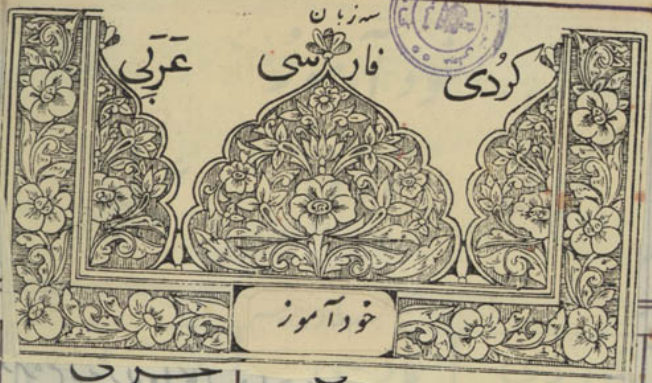 سه زبان
کُردی فارسی عَرَبی
خودآموز